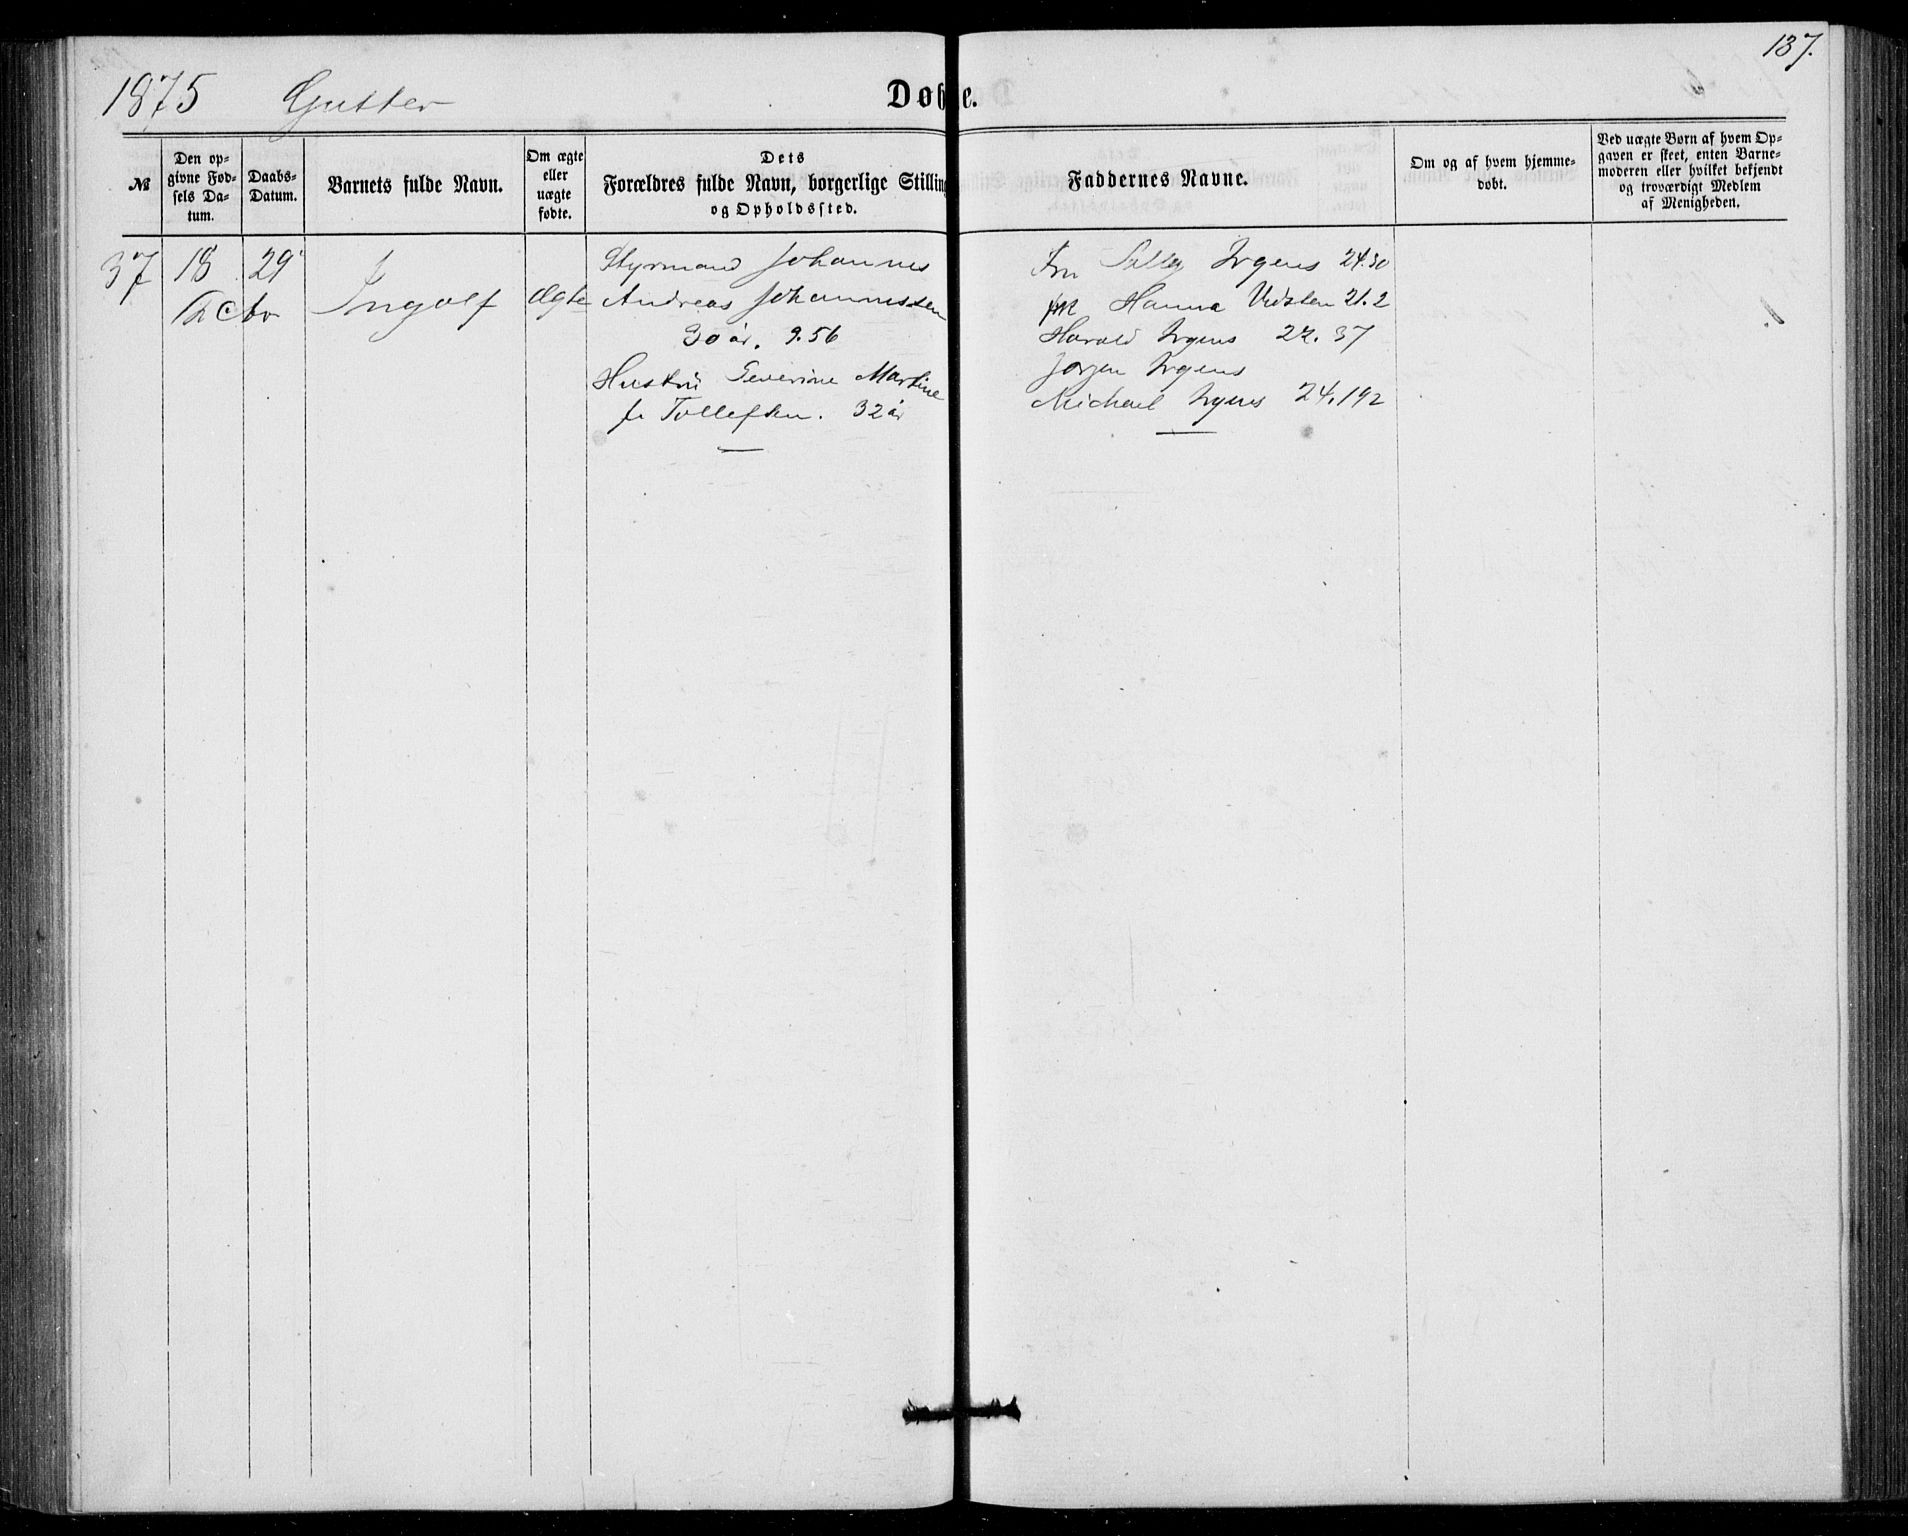 137.
1875 Gutter
Døbte.
№
Den op-
givne Fød-
sels Da-
tum.
Daabs-
Datum.
Barnets fulde Navn.
Om ægte
eller
uægte
fødte.
Dets
Forældres fulde Navn, borgerlige Stilling
og Opholdssted.
Faddernes Navne.
Om og af hvem hjemme-
døbt.
Ved uægte Børn af hvem Op-
gaven er skeet, enten Barne-
moderen eller hvilket bekjendt
og troværdigt Medlem
af Menigheden.
37
18
29
Ingolf
Ægte
Styrmand Johannes
Andreas Johannessen
30 år. 9.56
Hustru Severine Martine
f. Tollefsen. 32 år
Irgens 24.30
Hanna Vidsten 21.2
Harald Irgens 24.37
Jørgen Irgens
Michael Irgens 24.192